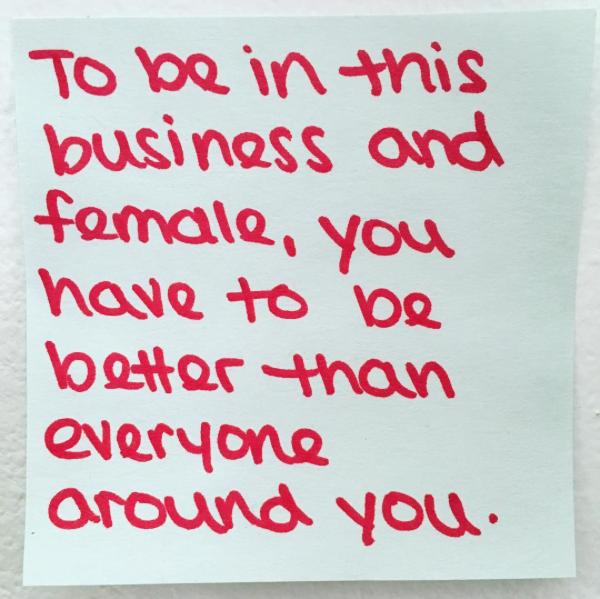 To be in this
business and
female, you
have to be
better than
everyone
around you.